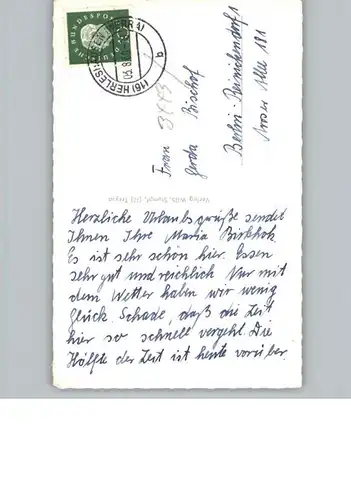 DEUTSCHE BUNDESPOST
(16) HERLES
b
Frau
Gerda Bischof
Berlin-Reinickendorf 1
Aroser Allee 181
Verlag Wilh. Stumpf, (16) Treysa
Herzliche Urlaubsgrüße sendet
Ihnen Ihre Maria Birkholz
Es ist sehr schön hier. Essen
sehr gut und reichlich Nur mit
dem Wetter haben wir wenig
Glück. Schade, daß die Zeit
hier so schnell vergeht. Die
Hälfte der Zeit ist heute vorüber.